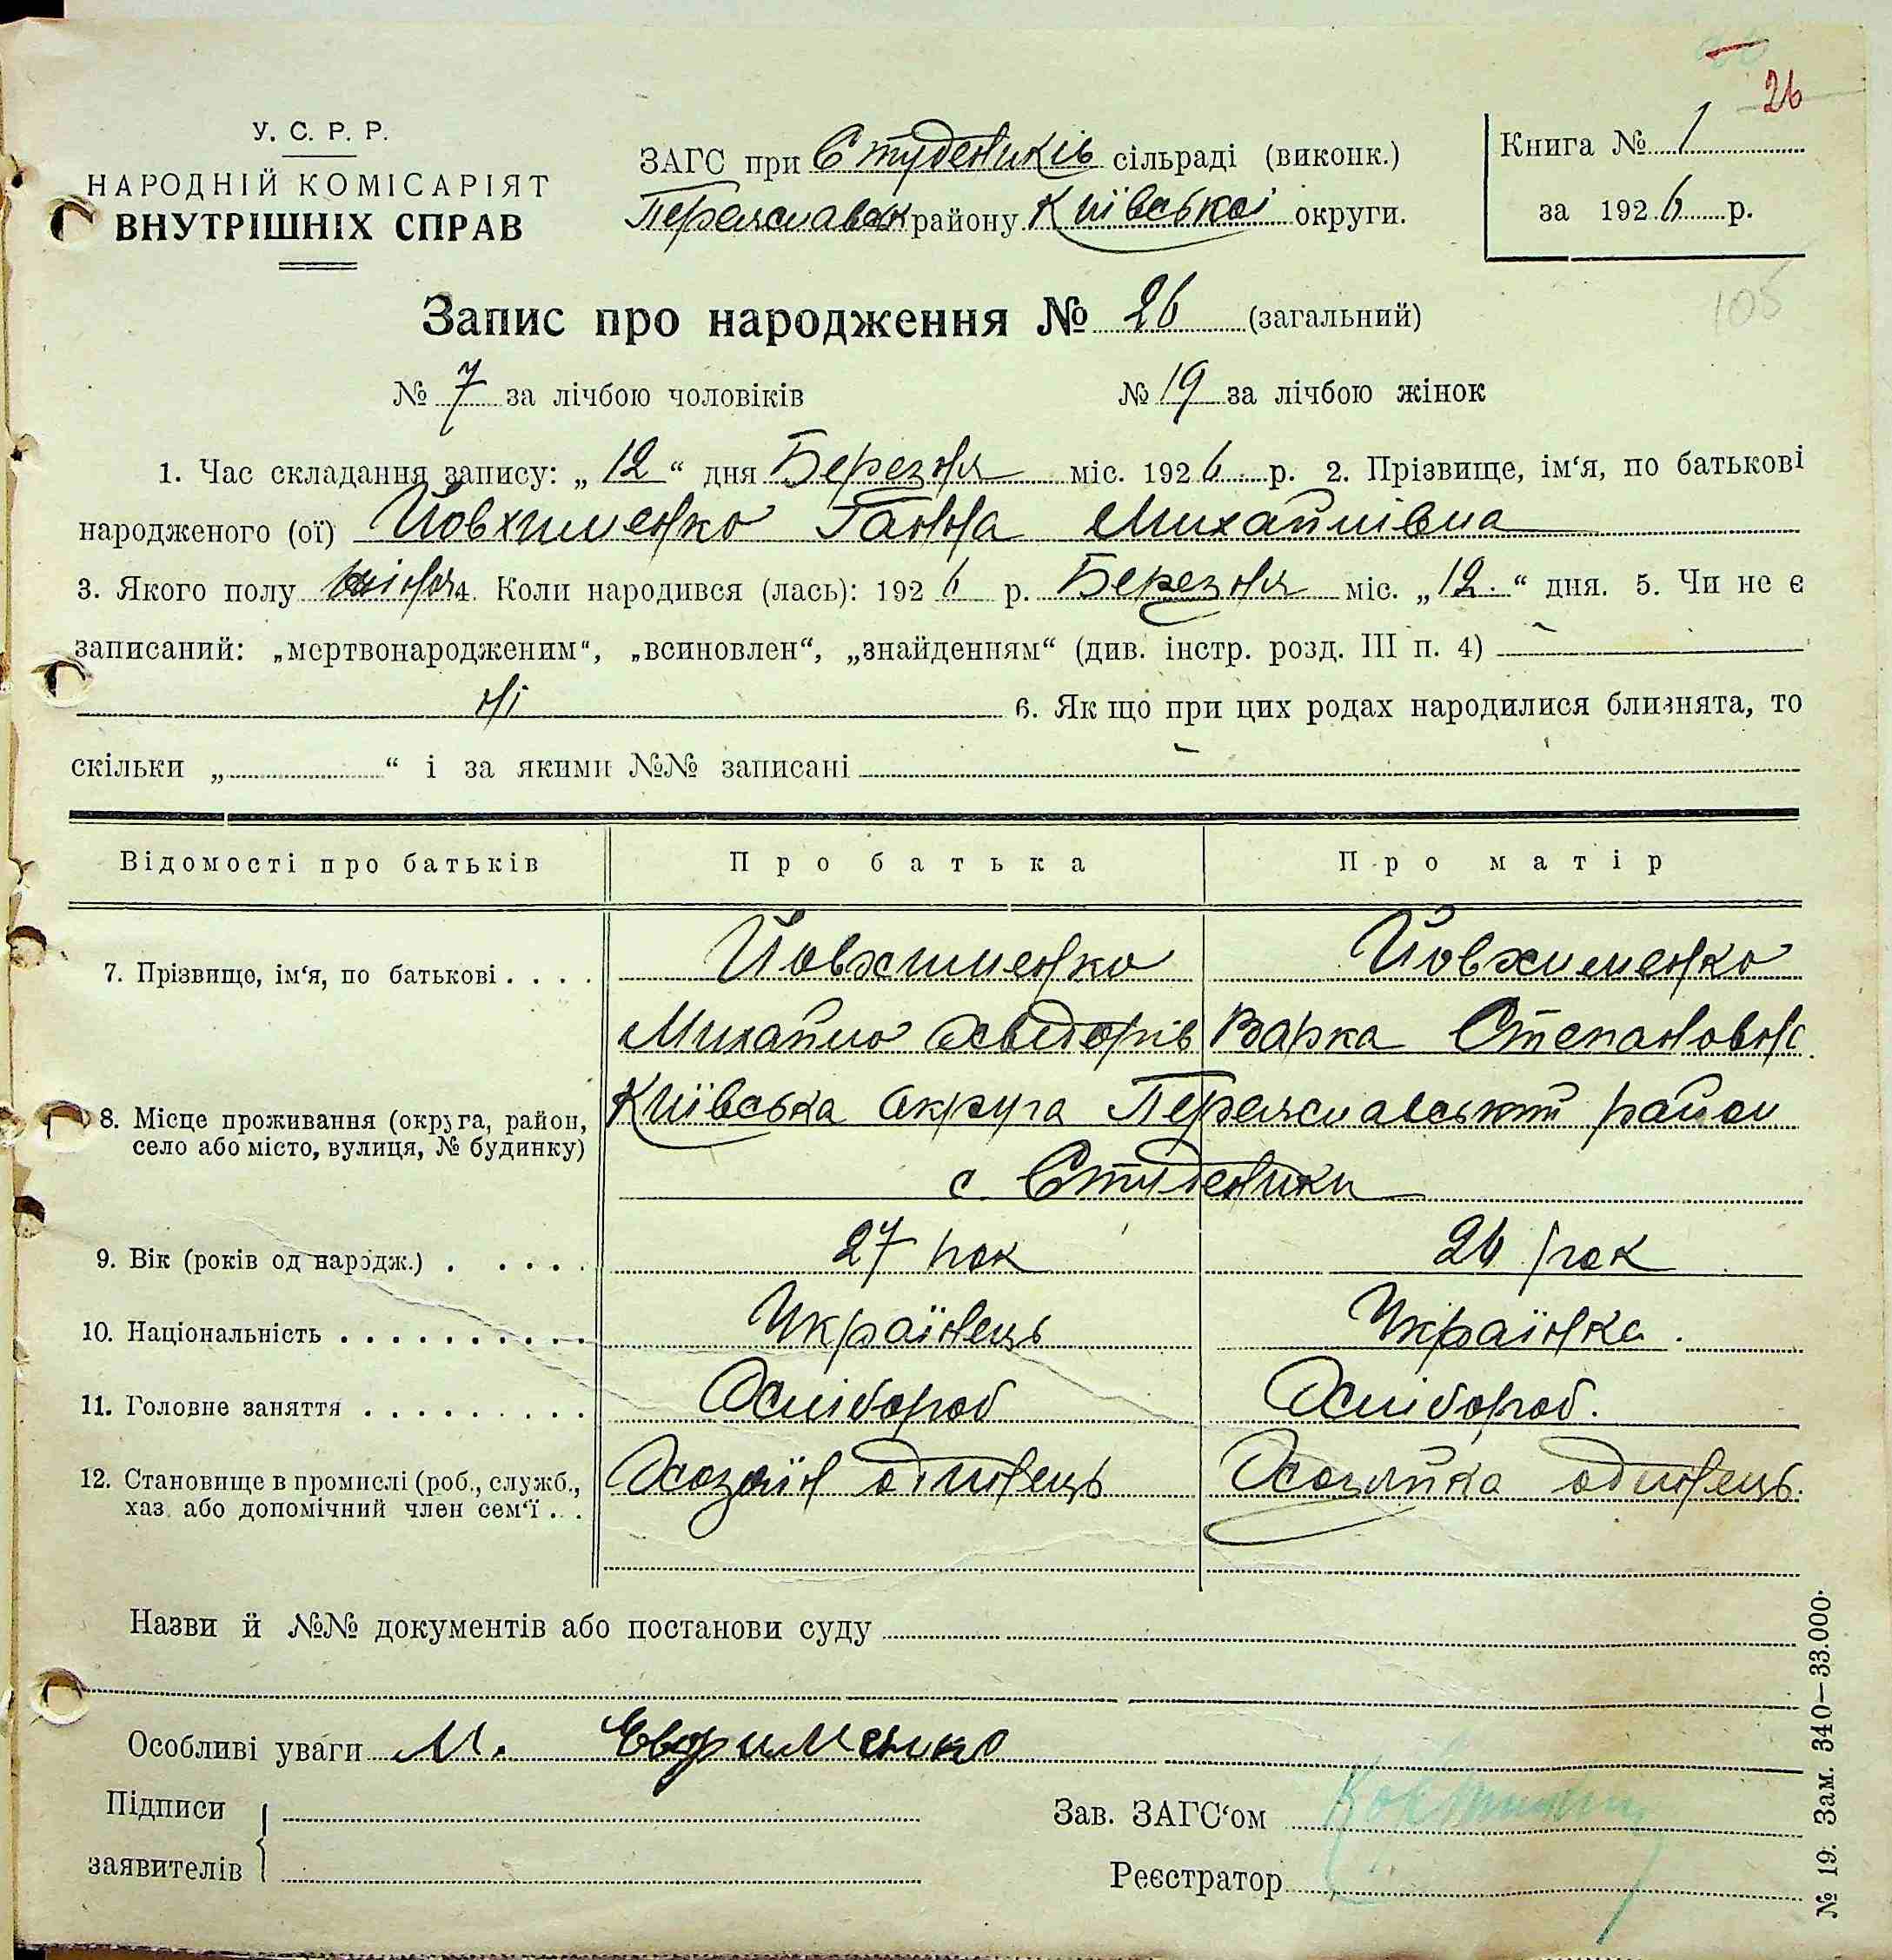 26
У. С. Р. Р.
НАРОДНІЙ КОМІСАРІЯТ
ВНУТРІШНІХ СПРАВ
ЗАГС при Студеників сільраді (виконк.)
Переяславськ району Київської округи.
Книга № 1
за 1926 р.
Запис про народження № 26 (загальний)
105
№ 7 за лічбою чоловіків № 19 за лічбою жінок
1. Час складання запису: „12“ дня Березня міс. 1926 р. 2. Прізвище, ім‘я, по батькові
народженого (ої) Йовхименко Ганна Михайлівна
3. Якого полу жіноч 4. Коли народився (лась): 1926 р. Березня міс. „12.“ дня. 5. Чи не є
записаний: „мертвонародженим“, „всиновлен“, „знайденням“ (див. інстр. розд. III п. 4)
ні 6. Як що при цих родах народилися близнята, то
скільки „ “ і за якими №№ записані
Відомості про батьків Про батька Про матір
7. Прізвище, ім‘я, по батькові . . . . Йовхименко Йовхименко
Михайло Варка Степановн
8. Місце проживання (округа, район, Київська округа Переяславський район
село або місто, вулиця, № будинку) с. Студеники
9. Вік (років од народж.) . . . . . 27 рок 26 рок
10. Національність . . . . . . . . . . Українець Українка.
11. Головне заняття . . . . . . . . . Хлібороб Хлібороб.
12. Становище в промислі (роб., служб., Хозяїн одинець Хозяйка одинець.
хаз. або допомічний член сем‘ї . . .
Назви й №№ документів або постанови суду
Особливі уваги М. Евфименко
Підписи
заявителів
Зав. ЗАГС‘ом
Реєстратор
№ 19. Зам. 340—33.000.